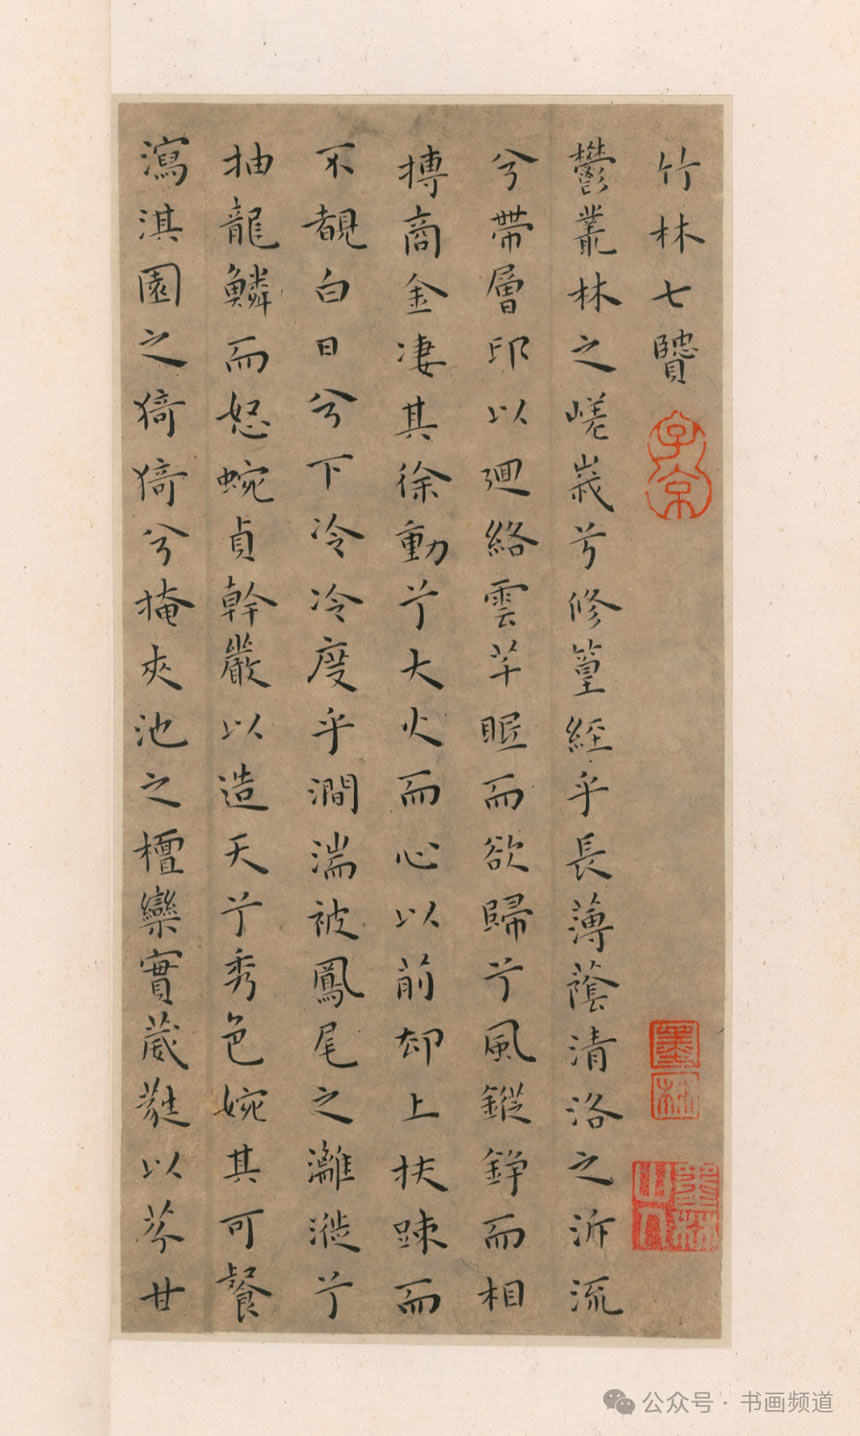 竹林七贒
子京
墨林
墨林山人
鬱叢林之嵯峩兮修篁經乎長薄蔭清洛之泝流
兮帶層邱以迴絡雲芊眠而欲歸兮風鏦錚而相
摶商金凄其徐動兮大火而心以前却上扶踈而
不覩白日兮下冷冷度乎澗湍被鳳尾之灕漇兮
抽龍鱗而怒蜿貞幹嚴以造天兮秀色婉其可餐
瀉淇園之猗猗兮掩夾池之檀欒實葳蕤以芬甘
公众号 · 书画频道